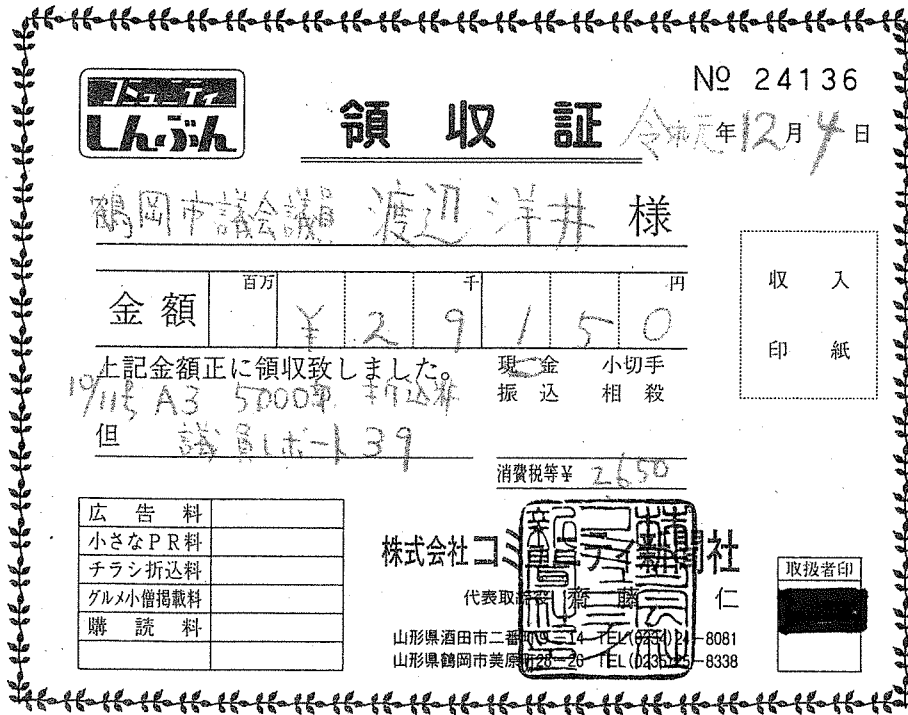 コミュニティ
しんぶん
№ 24136
領収証
令和元年12月4日
鶴岡市議会議員 渡辺洋井 様
金額 百万 千 円
¥29150
上記金額正に領収致しました。
現金 小切手
振込 相殺
10/11号 A3 5000部 折込料
但 議員レポート39
消費税等¥ 2650
収入
印紙
広告料
小さなPR料
チラシ折込料
グルメ小僧掲載料
購読料
株式会社コミュニティ新聞社
代表取締役 齋藤 仁
山形県酒田市二番町 -14 TEL(0234)24-8081
山形県鶴岡市美原町28-26 TEL(0235)25-8338
取扱者印